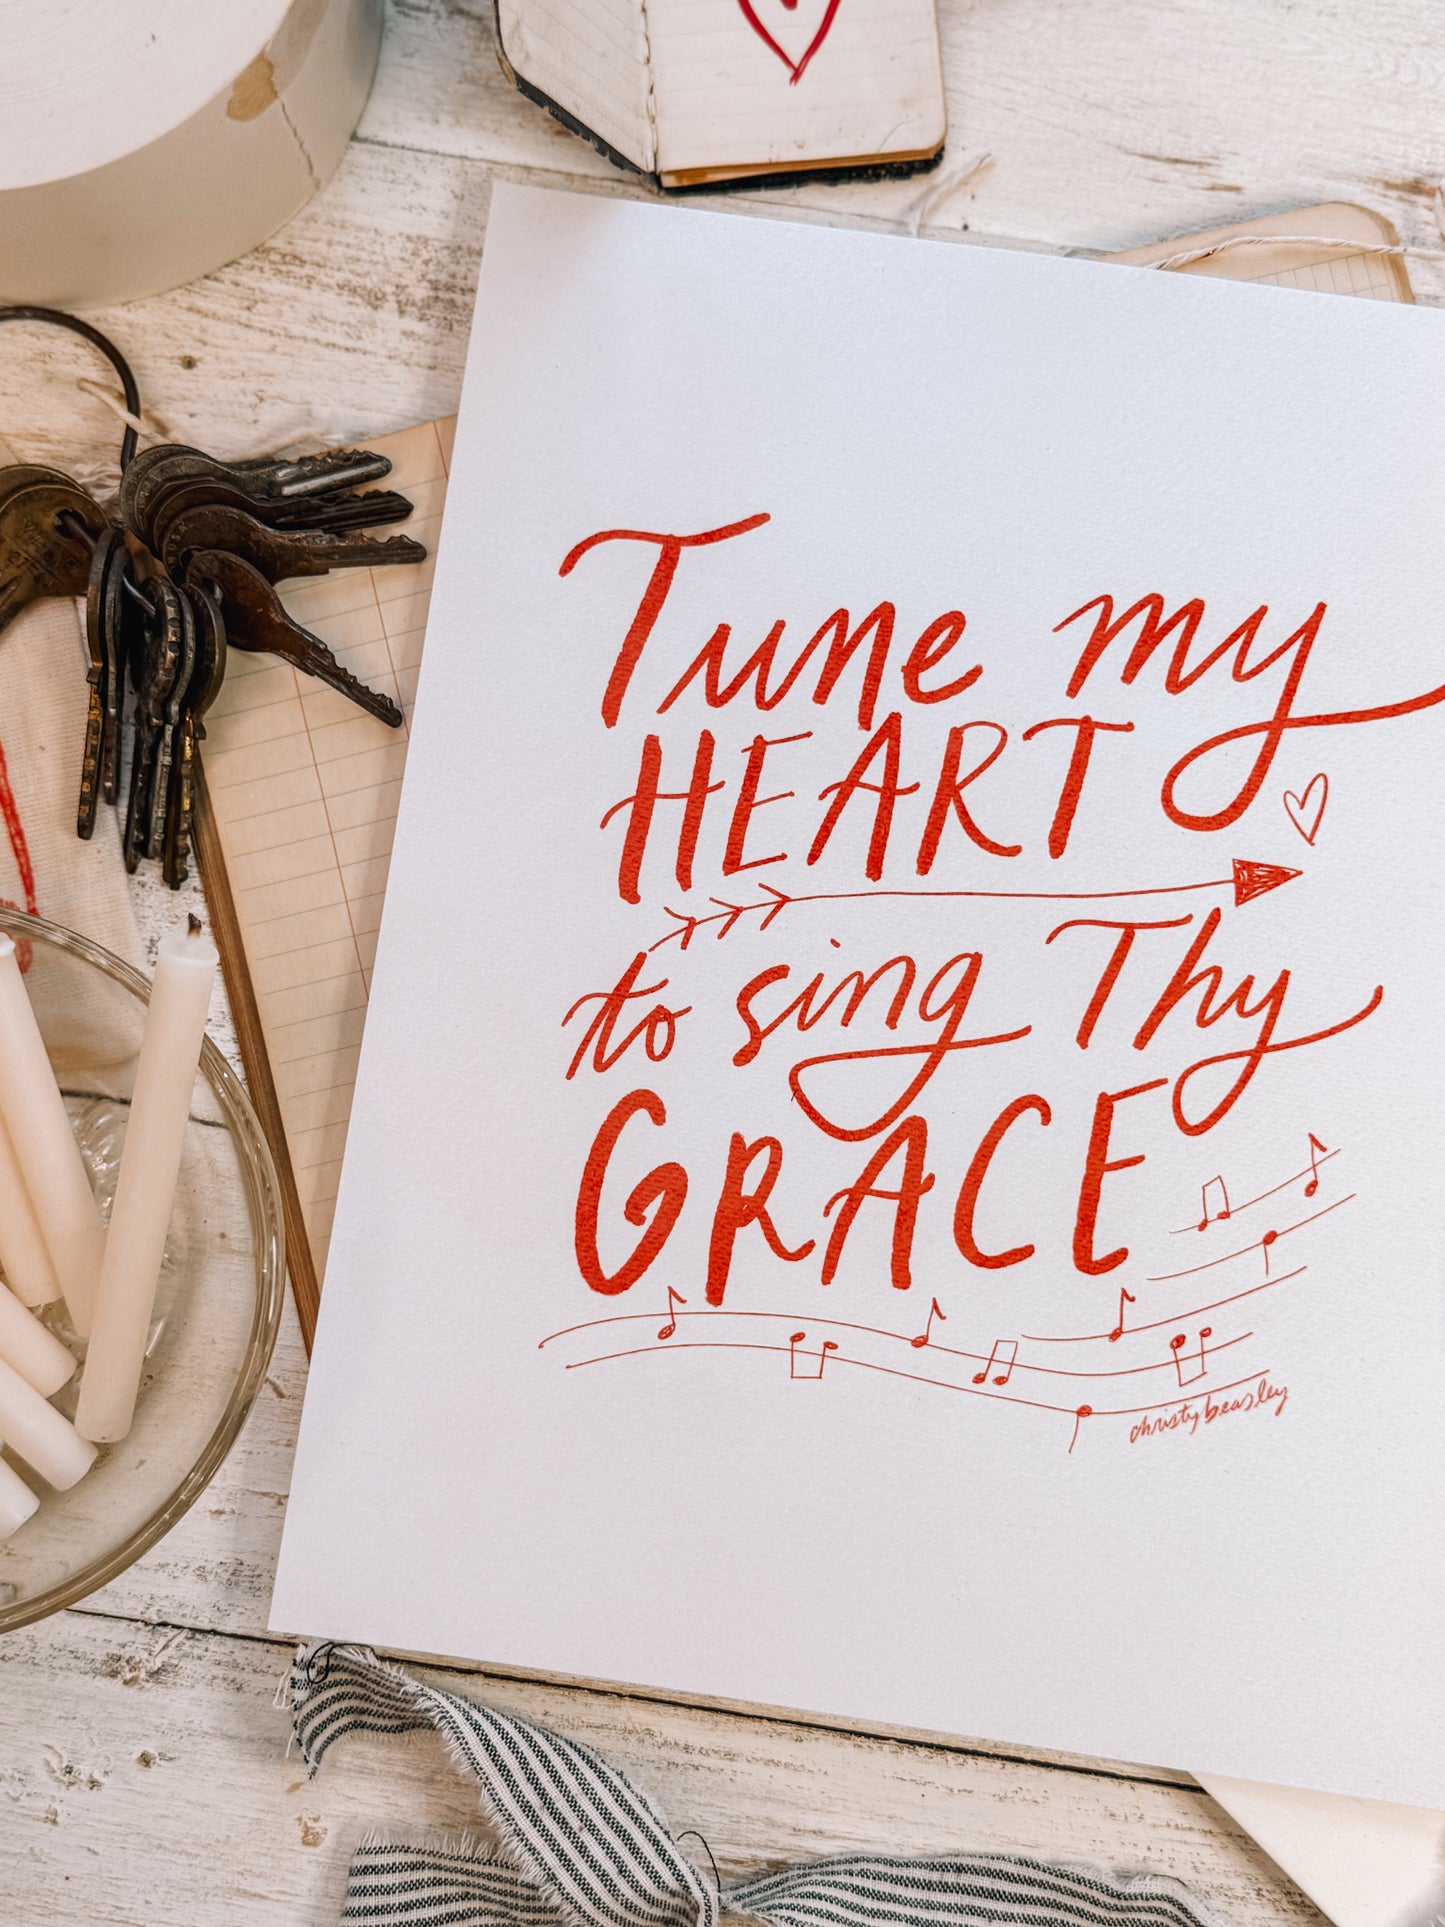 Tune my
HEART
to sing Thy
GRACE
christy beasley